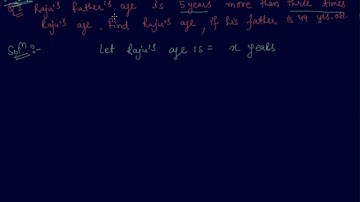 Raju's father's age is 5 years more than three times
Raju's age. Find Raju's age, if his father is 44 yrs. old
Solⁿ:- Let Raju's age is = x years